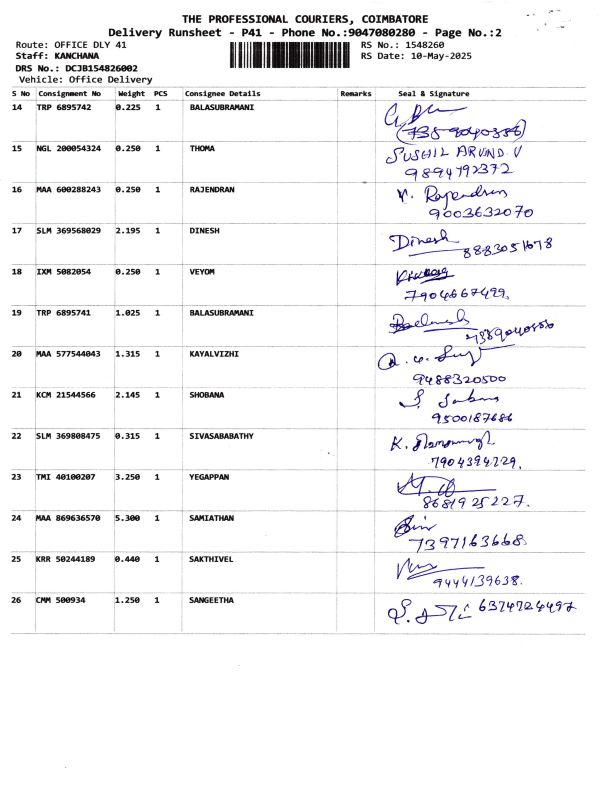 THE PROFESSIONAL COURIERS, COIMBATORE
Delivery Runsheet - P41 - Phone No.:9047080280 - Page No.:2
Route: OFFICE DLY 41 RS No.: 1548260
Staff: KANCHANA RS Date: 10-May-2025
DRS No.: DCJB154826002
Vehicle: Office Delivery
S No Consignment No Weight PCS Consignee Details Remarks Seal & Signature
14 TRP 6895742 0.225 1 BALASUBRAMANI
15 NGL 200054324 0.250 1 THOMA SUSHIL ARVIND V
9894792372
16 MAA 600288243 0.250 1 RAJENDRAN V. Rajendran
9003632070
17 SLM 369568029 2.195 1 DINESH Dinesh
8883051678
18 IXM 5082054 0.250 1 VEYOM
7904667499.
19 TRP 6895741 1.025 1 BALASUBRAMANI
20 MAA 577544043 1.315 1 KAYALVIZHI
9488320500
21 KCM 21544566 2.145 1 SHOBANA
9500187686
22 SLM 369808475 0.315 1 SIVASABABATHY K.
7904394229.
23 TMI 40100207 3.250 1 YEGAPPAN
8681925227.
24 MAA 869636570 5.300 1 SAMIATHAN
7397163668.
25 KRR 50244189 0.440 1 SAKTHIVEL
9444139638.
26 CMM 500934 1.250 1 SANGEETHA 6374724497